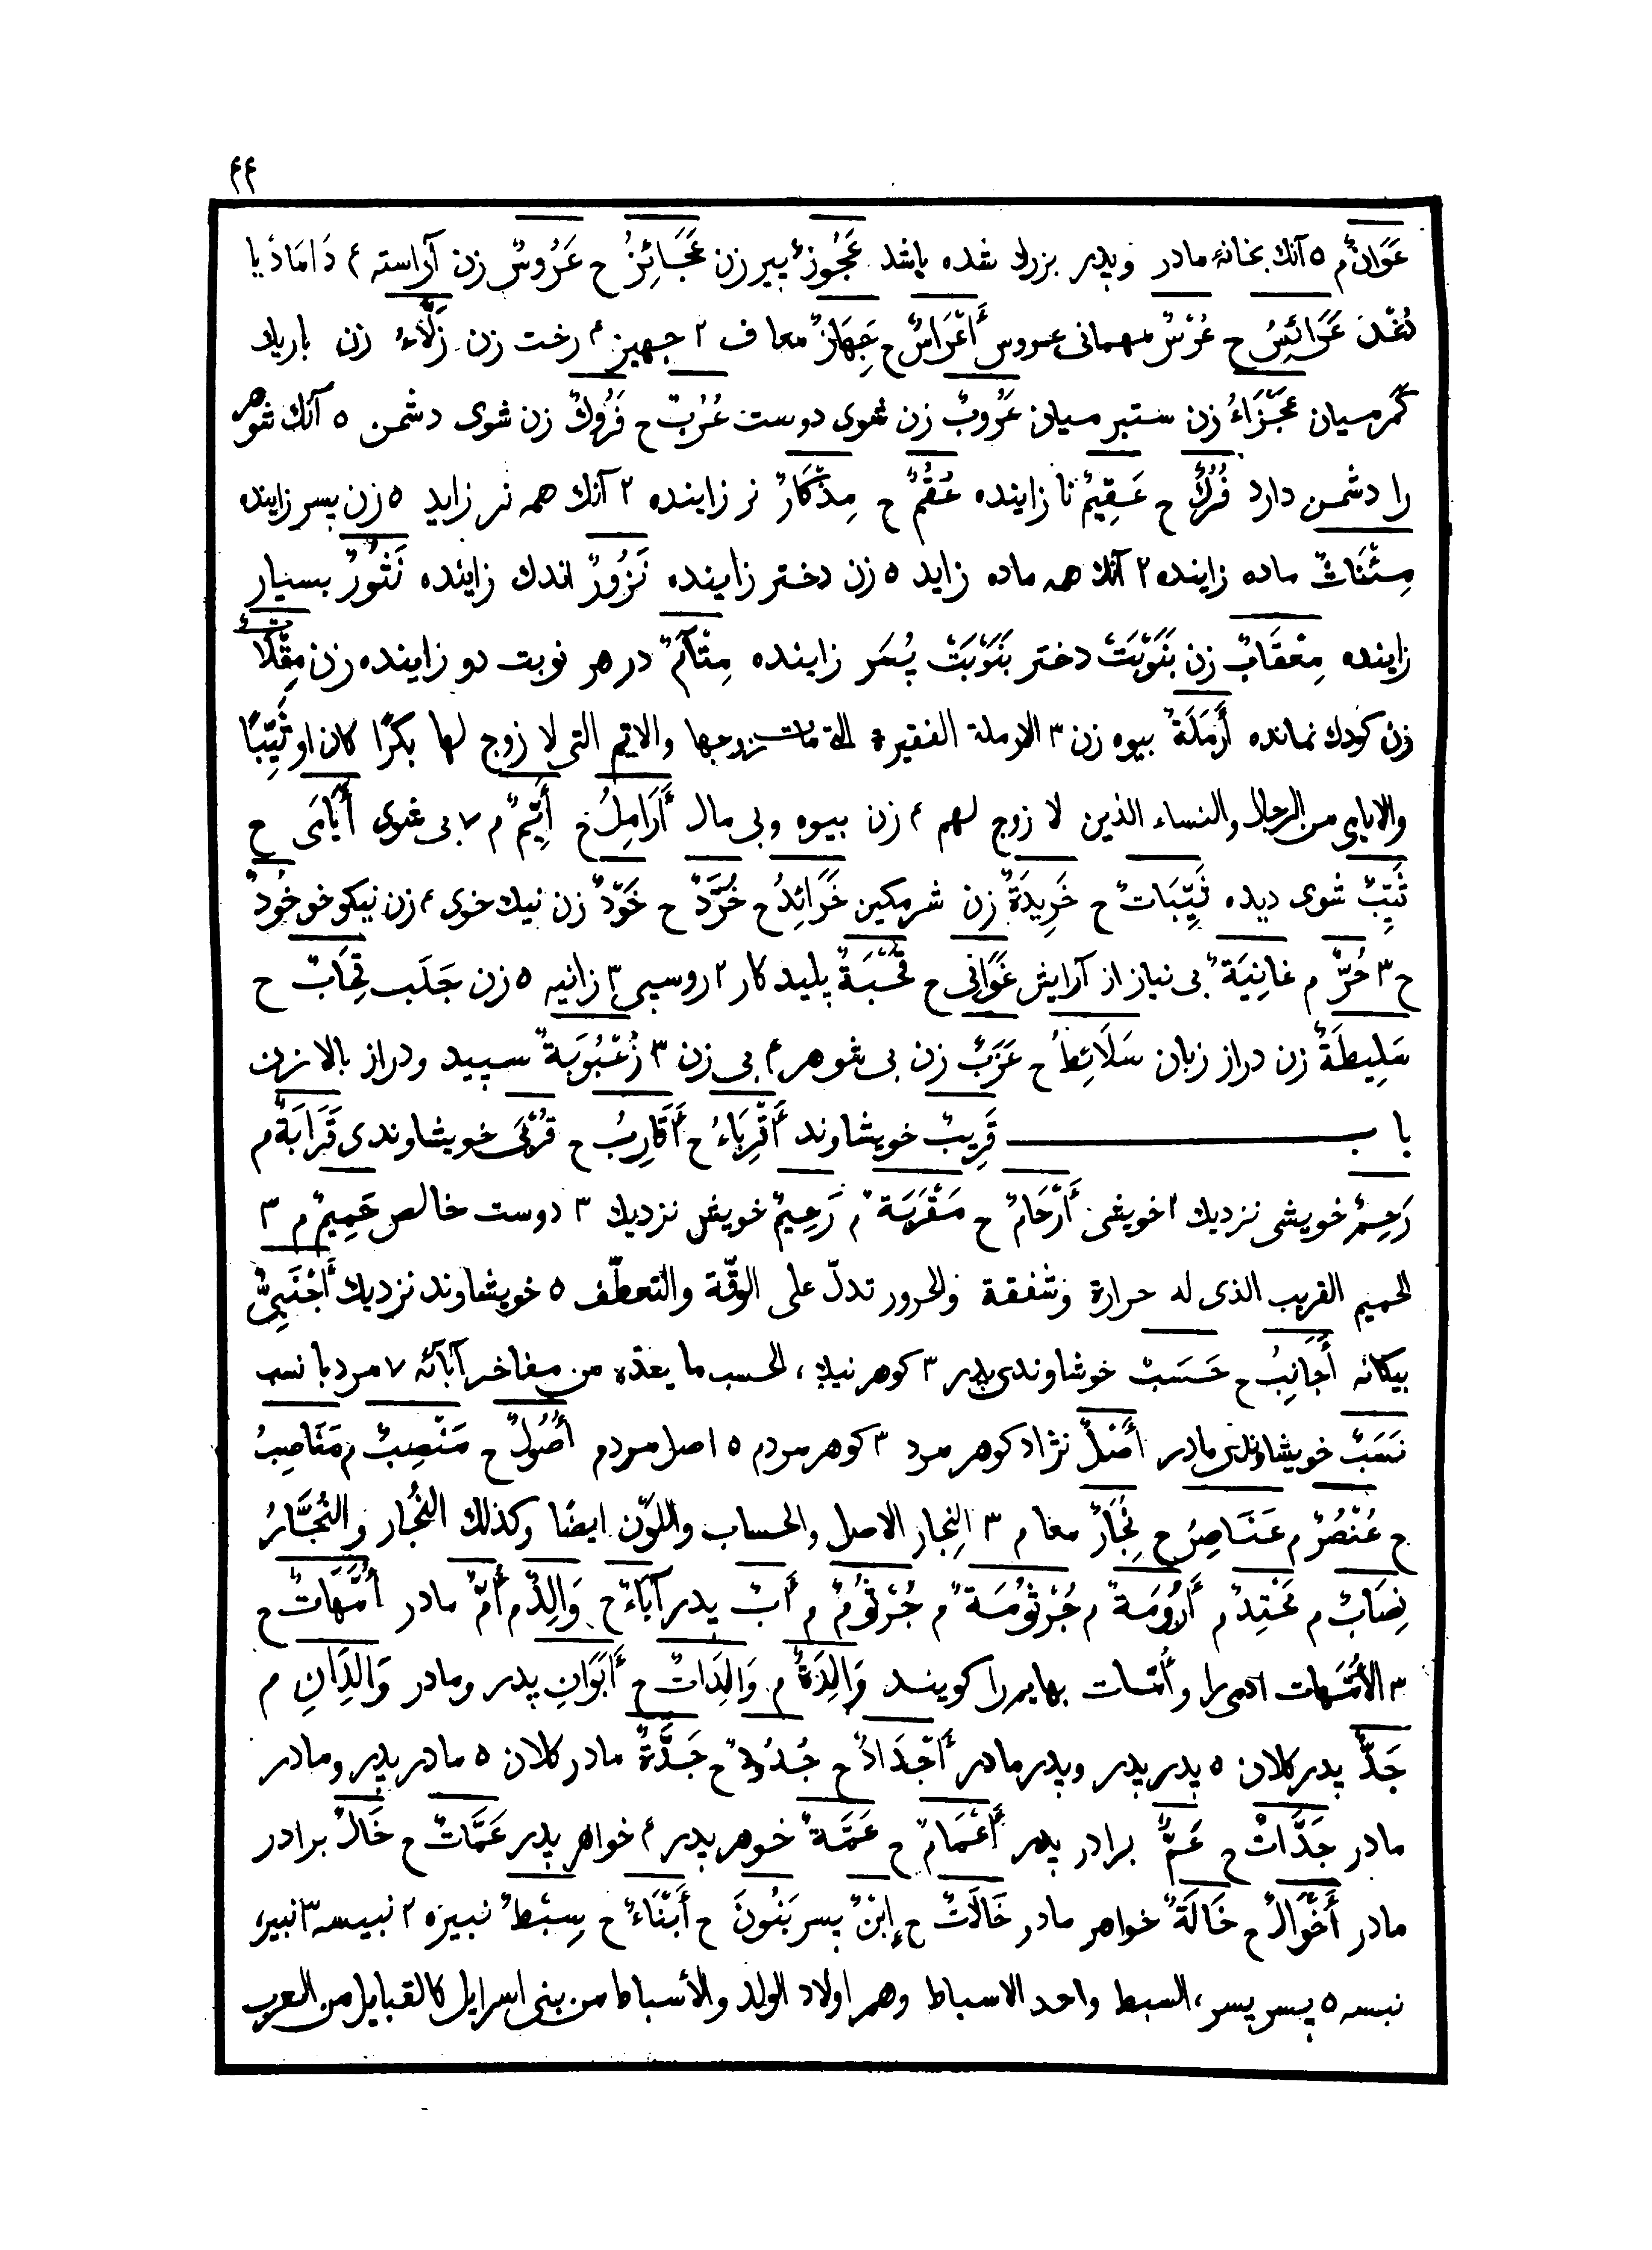 ۴۴
عَوَانٌ م ۵ آنك بخانهٔ مادر وپدر بزرك شده باشد عَجُوزٌ پير زن عَجَائِزُ ح عَرُوسٌ زن آراسته ۴ دَامَادْ يا
عَرَائِسُ ح عُرْسٌ مهمانی عروس أَعْرَاسٌ ح جِهَازٌ معاف ۲ جهيز ۴ رخت زن زَلَّاءُ زن باريك
كمر ميان عَجْزَاءُ زن ستبر ميان عَرُوبٌ زن شوی دوست عُرُبٌ ح فَرُوكٌ زن شوی دشمن ۵ آنك شوهر
را دشمن دارد فُرُكٌ ح عَقِيمٌ نا زاينده عُقُمٌ ح مِذْكَارٌ نر زاينده ۲ آنك همه نر زايد ۵ زن پسر زاينده
مِئْنَاثٌ ماده زاينده ۲ آنك همه ماده زايد ۵ زن دختر زاينده نَزُورٌ اندك زاينده نَثُورٌ بسيار
زاينده مِعْقَابٌ زن بَنَوْبَتْ دختر بَنَوْبَتْ پُسَر زاينده مِتْآمٌ در هر نوبت دو زاينده زن مِقْلَاتٌ
زن كودك نمانده أَرْمَلَةٌ بيوه زن ۳ الارملة الفقيرة التی مات زوجها والايّم التی لا زوج لها بكرًا كان او ثَيِّبًا
والايامی من الرجال والنساء الذين لا زوج لهم ۴ زن بيوه وبی مال أَرَامِلُ ح أَيِّمٌ م ۷ بی شوی أَيَامَى ح
ثَيِّبٌ شوی ديده ثَيِّبَاتٌ ح خَرِيدَةٌ زن شرمكين خَرَائِدُ ح خُرَّدٌ ح خَوْدٌ زن نيك خوی ۴ زن نيكو خو خُودٌ
ح ۳ حُرٌّ م غَانِيَةٌ بی نياز از آرايش غَوَانِی ح قَحْبَةٌ پليد كار ۲ روسپی ۳ زانيه ۵ زن جَلَب قِحَابٌ ح
سَلِيطَةٌ زن دراز زبان سَلَائِطُ ح عَزَبٌ زن بی شوهر ۴ بی زن ۳ زُعْبُوبَةٌ سپيد ودراز بالا زن
باب قَرِيبٌ خويشاوند أَقْرِبَاءُ ح أَقَارِبُ ح قُرْبَى خويشاوندی قَرَابَةٌ م
رَحِمٌ خويشی نزديك ۲ خويشی أَرْحَامٌ ح مَقْرَبَةٌ م رَحِيمٌ خويش نزديك ۳ دوست خالص حَمِيمٌ م ۳
الحميم القريب الذی له حرارة وشفقة والحرور تدلّ على الرقّة والتعطّف ۵ خويشاوند نزديك أَجْنَبِیٌّ
بيكانه أَجَانِبُ ح حَسَبٌ خوشاوندی پدر ۳ كوهر نيك، الحسب ما يعدّه من مفاخر آبائه ۷ مرد با نسب
نَسَبٌ خويشاوندی مادر أَصْلٌ نژاد كوهر مرد ۳ كوهر مردم ۵ اصل مردم أُصُولٌ ح مَنْصِبٌ م مَنَاصِبُ
ح عُنْصُرٌ م عَنَاصِرُ ح نِجَارٌ معا م ۳ النِجار الاصل والحساب واللوّن ايضًا وكذلك النُّجار والنُّجَّارُ
نِصَابٌ م مَحْتِدٌ م أَرُومَةٌ م جُرْثُومَةٌ م جُرْثُومٌ م أَبٌ پدر آبَاءٌ ح وَالِدٌ م أُمٌّ مادر أُمَّهَاتٌ ح
۳ الأُمّهات ادمی را وأُمّات بهايم را كويند وَالِدَةٌ م وَالِدَاتٌ ح أَبَوَانِ پدر ومادر وَالِدَانِ م
جَدٌّ پدر كلان ۵ پدر پدر وپدر مادر أَجْدَادٌ ح جُدُودٌ ح جَدَّةٌ مادر كلان ۵ مادر پدر ومادر
مادر جَدَّاتٌ ح عَمٌّ برادر پدر أَعْمَامٌ ح عَمَّةٌ خوهر پدر ۴ خواهر پدر عَمَّاتٌ ح خَالٌ برادر
مادر أَخْوَالٌ ح خَالَةٌ خواهر مادر خَالَاتٌ ح إِبْنٌ پسر بَنُونَ ح أَبْنَاءٌ ح سِبْطٌ نبيزه ۲ نبيسه ۳ نبير،
نبسه ۵ پسر پسر، السبط واحد الاسباط وهم اولاد الولد والأسباط من بنی اسرايل كالقبايل من العرب